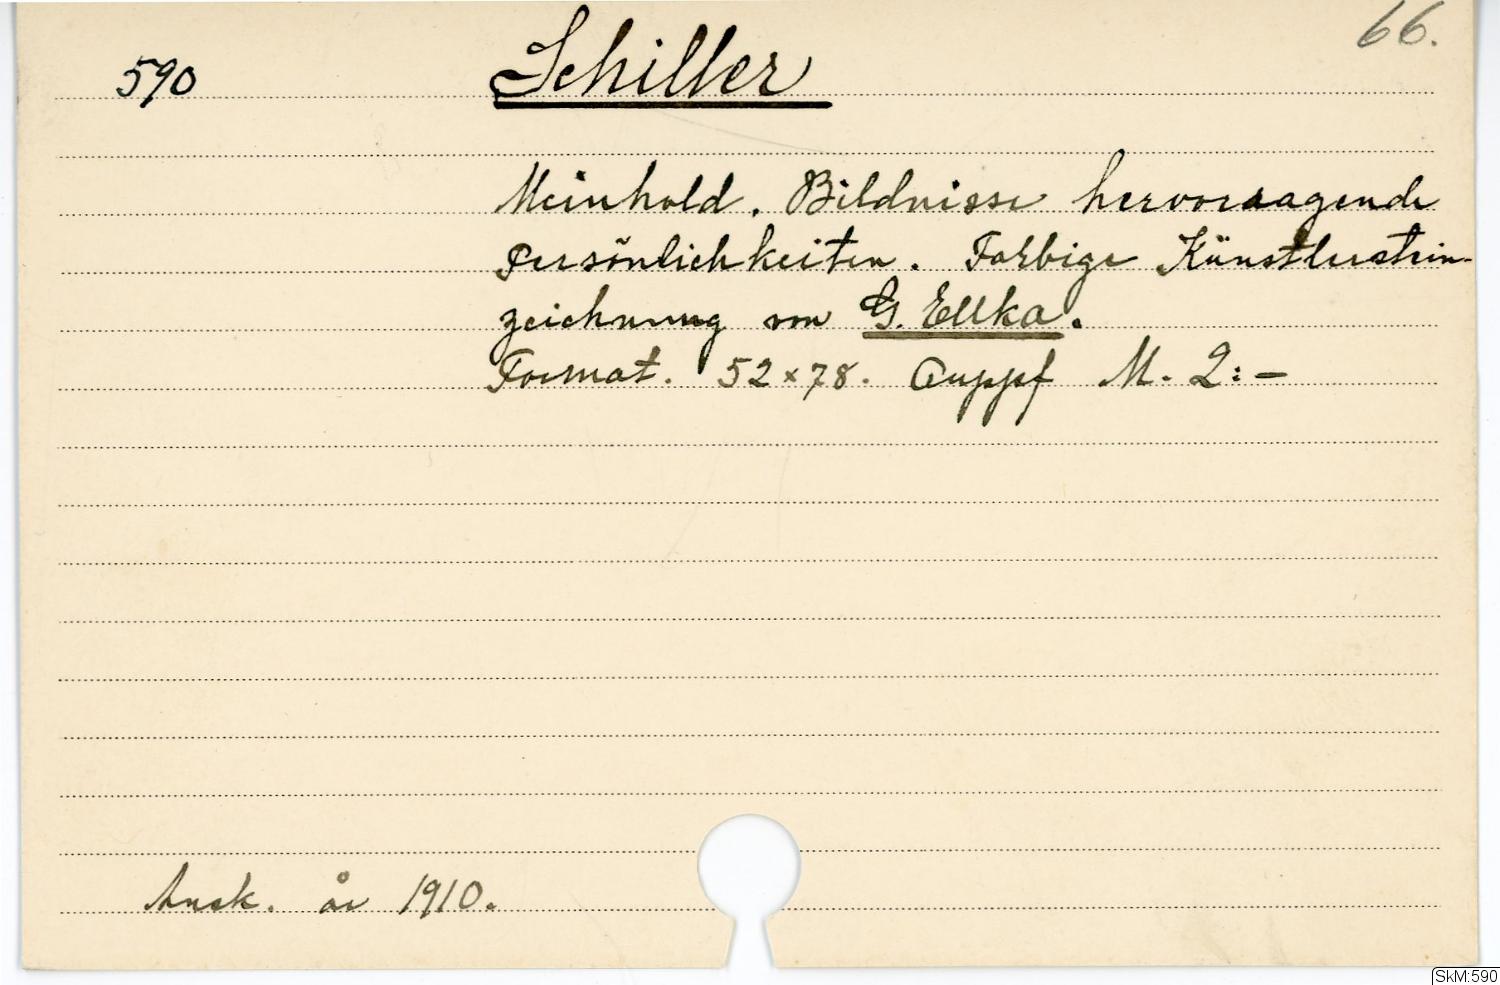 66.
590 Schiller
Meinhold. Bildnisse hervorragende
Persönlichkeiten. Farbige Künstlerstein-
zeichnung von G. Ellka.
Format. 52 x 78. Auppf M. 2:-
Ansk. år 1910.
SkM:590